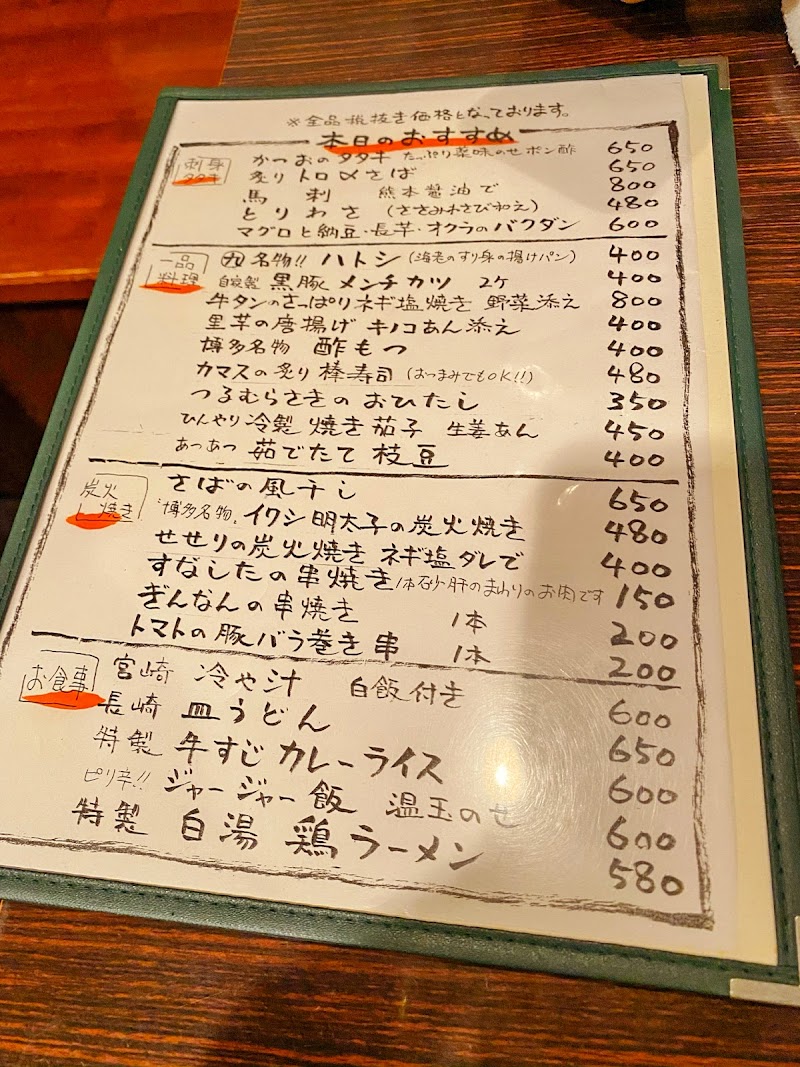 ※全品税抜き価格となっております。
本日のおすすめ
刺身
タタキ
かつおのタタキ たっぷり薬味のせポン酢 650
炙りトロ〆さば 650
馬刺 熊本醤油で 800
とりわさ (ささみわさび和え) 480
マグロと納豆・長芋・オクラのバクダン 600
一品
料理
九 名物!! ハトシ (海老のすり身の揚げパン) 400
自家製 黒豚メンチカツ 2ケ 400
牛タンのさっぱりネギ塩焼き 野菜添え 800
里芋の唐揚げ キノコあん添え 400
博多名物 酢もつ 400
カマスの炙り棒寿司 (おつまみでもOK!!) 480
つるむらさきのおひたし 350
ひんやり冷製 焼き茄子 生姜あん 450
あつあつ 茹でたて 枝豆 400
炭火
焼き
さばの風干し 650
"博多名物" イワシ明太子の炭火焼き 480
せせりの炭火焼き ネギ塩ダレで 400
すなしたの串焼き 1本 砂肝のまわりのお肉です 150
ぎんなんの串焼き 1本 200
トマトの豚バラ巻き串 1本 200
お食事
宮崎 冷や汁 白飯付き 600
長崎 皿うどん 650
特製 牛すじカレーライス 600
ピリ辛!! ジャージャー飯 温玉のせ 600
特製 白湯 鶏ラーメン 580